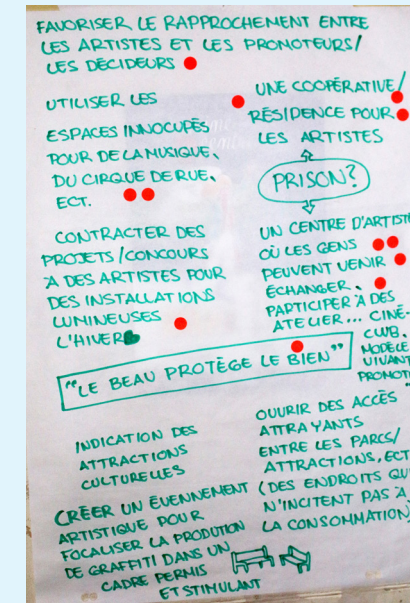 FAVORISER LE RAPPROCHEMENT ENTRE
LES ARTISTES ET LES PROMOTEURS/
LES DÉCIDEURS
UTILISER LES
ESPACES INNOCUPÉS
POUR DE LA MUSIQUE,
DU CIRQUE DE RUE,
ECT.
CONTRACTER DES
PROJETS/CONCOURS
À DES ARTISTES POUR
DES INSTALLATIONS
LUMINEUSES
L'HIVER
UNE COOPÉRATIVE/
RÉSIDENCE POUR
LES ARTISTES
PRISON?
UN CENTRE D'ARTISTE
OÙ LES GENS
PEUVENT VENIR
ÉCHANGER,
PARTICIPER À DES
ATELIER... CINÉ-
CLUB.
MODÈLE
VIVANT
PROMOT
"LE BEAU PROTÈGE LE BIEN"
INDICATION DES
ATTRACTIONS
CULTURELLES
CRÉER UN ÉVENNEMENT
ARTISTIQUE POUR
FOCALISER LA PRODUTION
DE GRAFFITI DANS UN
CADRE PERMIS
ET STIMULANT
OUVRIR DES ACCÈS
ATTRAYANTS
ENTRE LES PARCS/
ATTRACTIONS, ECT
(DES ENDROITS QUI
N'INCITENT PAS À
LA CONSOMMATION)